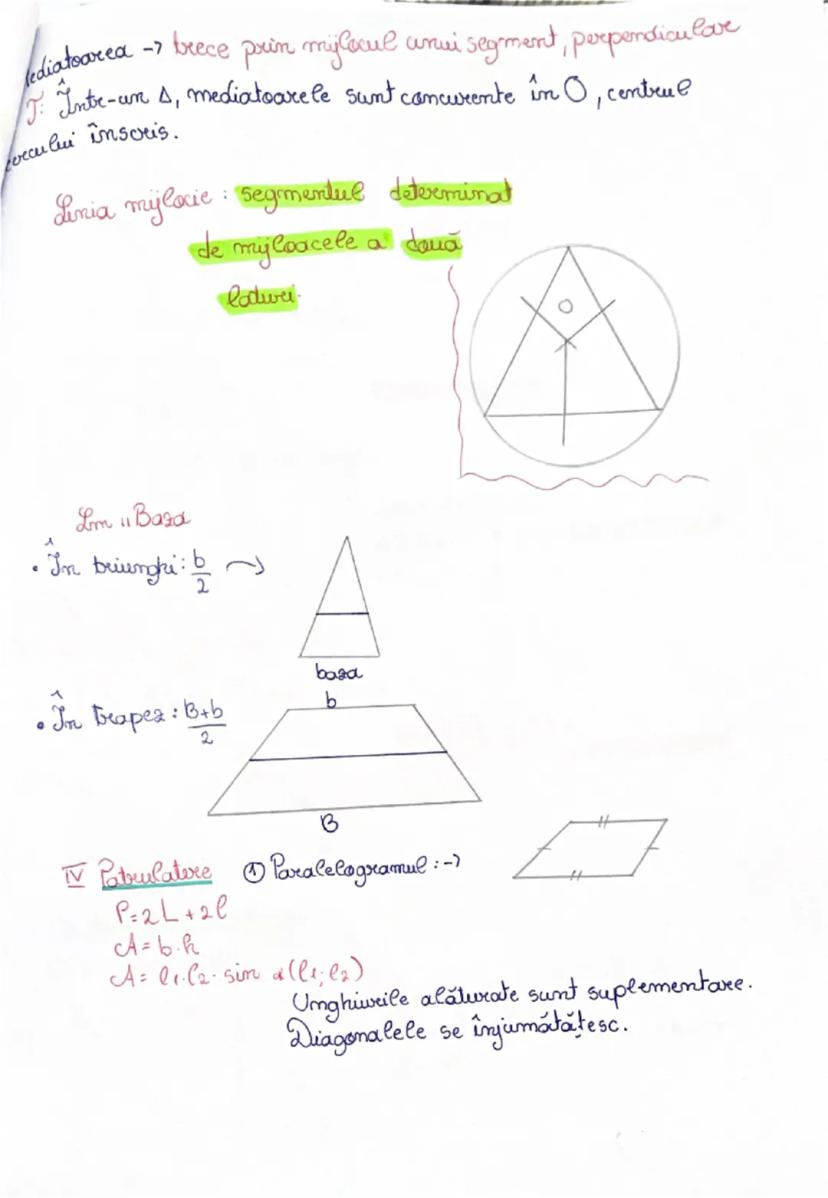 Mediatoarea -> trece prin mijlocul unui segment, perpendicular
T: Într-un Δ, mediatoarele sunt concurente în O, centrul
cercului înscris.
Linia mijlocie: segmentul determinat
de mijloacele a două
laturi.
O
Lm || Baza
• În triunghi: b/2 ->
baza
• În trapez: B+b/2
b
B
IV Patrulatere ① Paralelogramul: ->
P=2L+2l
A=b·h
A= l₁·l₂· sin ∢(l₁; l₂)
Unghiurile alăturate sunt suplementare.
Diagonalele se înjumătățesc.